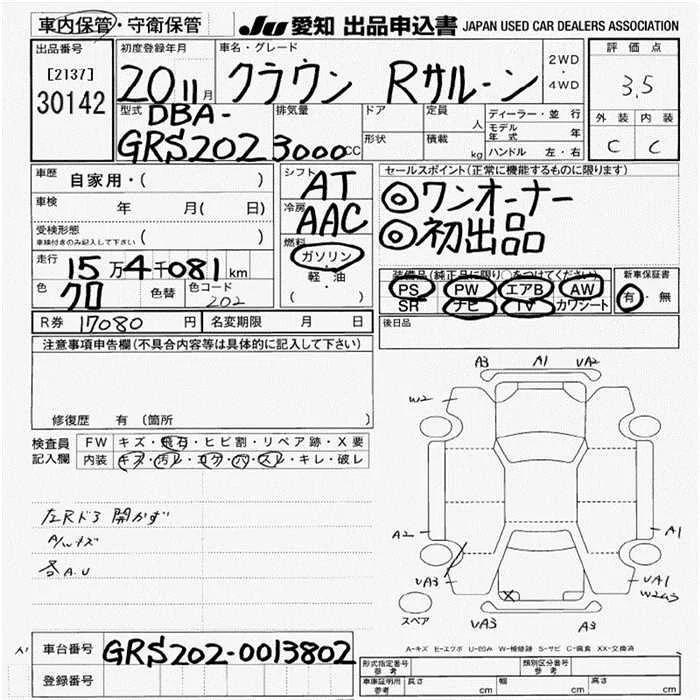 車内保管・守衛保管
JU 愛知 出品申込書 JAPAN USED CAR DEALERS ASSOCIATION
出品番号
[2137]
30142
初度登録年月
20 11月
車名・グレード
クラウン Rサルーン
2WD
・
4WD
評価点
3.5
外装 内装
C C
型式
DBA-
GRS202
排気量
3000cc
ドア
形状
定員
人
積載
kg
ディーラー・並行
モデル年式 年
ハンドル 左・右
車歴
自家用・( )
車検
年 月( 日)
受検形態
車検付きのみ記入して下さい ( )
走行
15万4千081km
色
クロ
色替
色コード
202
シフト
AT
冷房
AAC
燃料
ガソリン
・
軽・油
( )
セールスポイント(正常に機能するものに限ります)
◎ワンオーナー
◎初出品
装備品(純正品に限り○をつけてください)
PS PW エアB AW
SR ナビ TV カワシート
新車保証書
有・無
R券 17080 円
名変期限 月 日
後日品
注意事項申告欄(不具合内容等は具体的に記入して下さい)
修復歴 有 (箇所 )
検査員
記入欄
FW キズ・飛石・ヒビ割・リペア跡・X要
内装 キズ・汚レ・コゲ・穴・スレ・キレ・破レ
左Rドア 開かず
A/Wキズ
各A.U
A3 A1 UA2
W2
A2
A1
UA3
UA1
W2A3
X
スペア
UA3
A3
A-キズ E-エクボ U-凹み W-補修跡 S-サビ C-腐食 XX-交換済
A1
車台番号
GRS202-0013802
登録番号
形式指定番号
参考
類別区分番号
参考
車庫証明用
参考
長さ cm
幅 cm
高さ cm